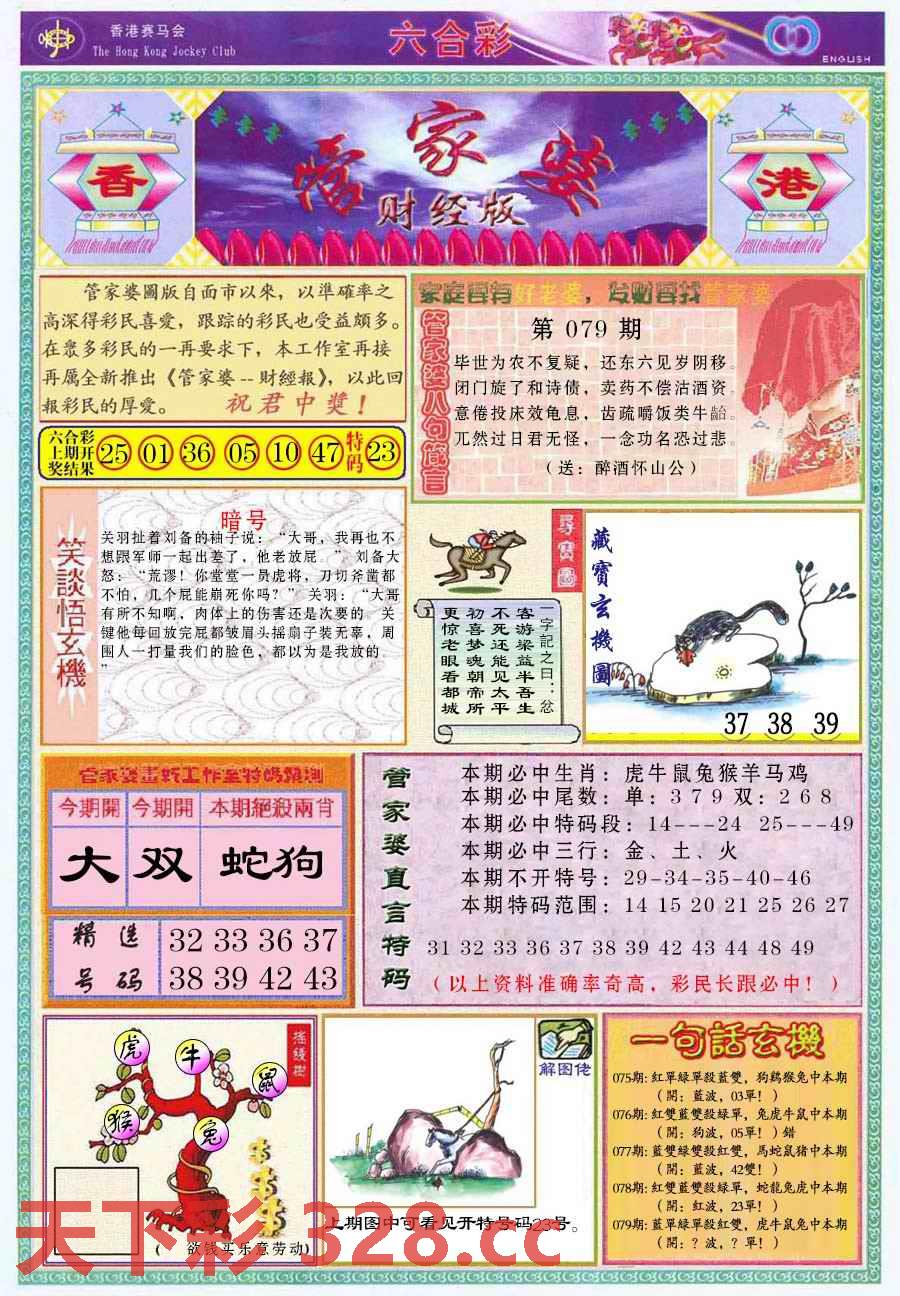 香港赛马会
The Hong Kong Jockey Club
六合彩
ENGLISH
香
管家婆
财经版
港
管家婆圖版自面市以來，以準確率之
高深得彩民喜愛，跟踪的彩民也受益頗多。
在衆多彩民的一再要求下，本工作室再接
再属全新推出《管家婆--財經報》，以此回
報彩民的厚愛。 祝君中獎！
六合彩
上期开
奖结果
25 01 36 05 10 47 特码 23
家庭要有好老婆，发财要找管家婆
管家婆八句箴言
第 079 期
毕世为农不复疑，还东六见岁阴移。
闭门旋了和诗债，卖药不偿沽酒资。
意倦投床效龟息，齿疏嚼饭类牛齝。
兀然过日君无怪，一念功名恐过悲。
（送：醉酒怀山公）
笑談悟玄機
暗号
关羽扯着刘备的袖子说：“大哥，我再也不
想跟军师一起出差了，他老放屁。”刘备大
怒：“荒谬！你堂堂一员虎将，刀切斧凿都
不怕，几个屁能崩死你吗？”关羽：“大哥
有所不知啊，肉体上的伤害还是次要的。关
键他每回放完屁都皱眉头摇扇子装无辜，周
围人一打量我们的脸色，都以为是我放的。
”
尋寶圖
一字記之曰：忿
客游梁益半吾生
不死还能见太平
初喜梦魂朝帝所
更惊老眼看都城
藏寶玄機圖
37 38 39
管家婆畫跡工作室特碼預測
今期開 今期開 本期絕殺兩肖
大 双 蛇狗
精选
号码
32 33 36 37
38 39 42 43
管家婆直言特码
本期必中生肖：虎牛鼠兔猴羊马鸡
本期必中尾数：单：3 7 9 双：2 6 8
本期必中特码段：14---24 25---49
本期必中三行：金、土、火
本期不开特号：29-34-35-40-46
本期特码范围：14 15 20 21 25 26 27
31 32 33 36 37 38 39 42 43 44 48 49
（以上资料准确率奇高，彩民长跟必中！）
搖錢樹
虎 牛 鼠
猴 兔
（ 欲钱买乐意劳动）
解图佬
上期图中可看见开特号码23号。
一句話玄機
075期：紅單緑單殺藍雙，狗鷄猴兔中本期
（開：藍波，03單！）
076期：紅雙藍雙殺緑單，兔虎牛鼠中本期
（開：狗波，05單！）錯
077期：藍雙緑雙殺紅雙，馬蛇鼠猪中本期
（開：藍波，42雙！）
078期：紅雙藍雙殺緑單，蛇龍兔虎中本期
（開：紅波，23單！）
079期：藍單緑單殺紅雙，虎牛鼠兔中本期
（開：？波，？單！）
天下彩 328.cc